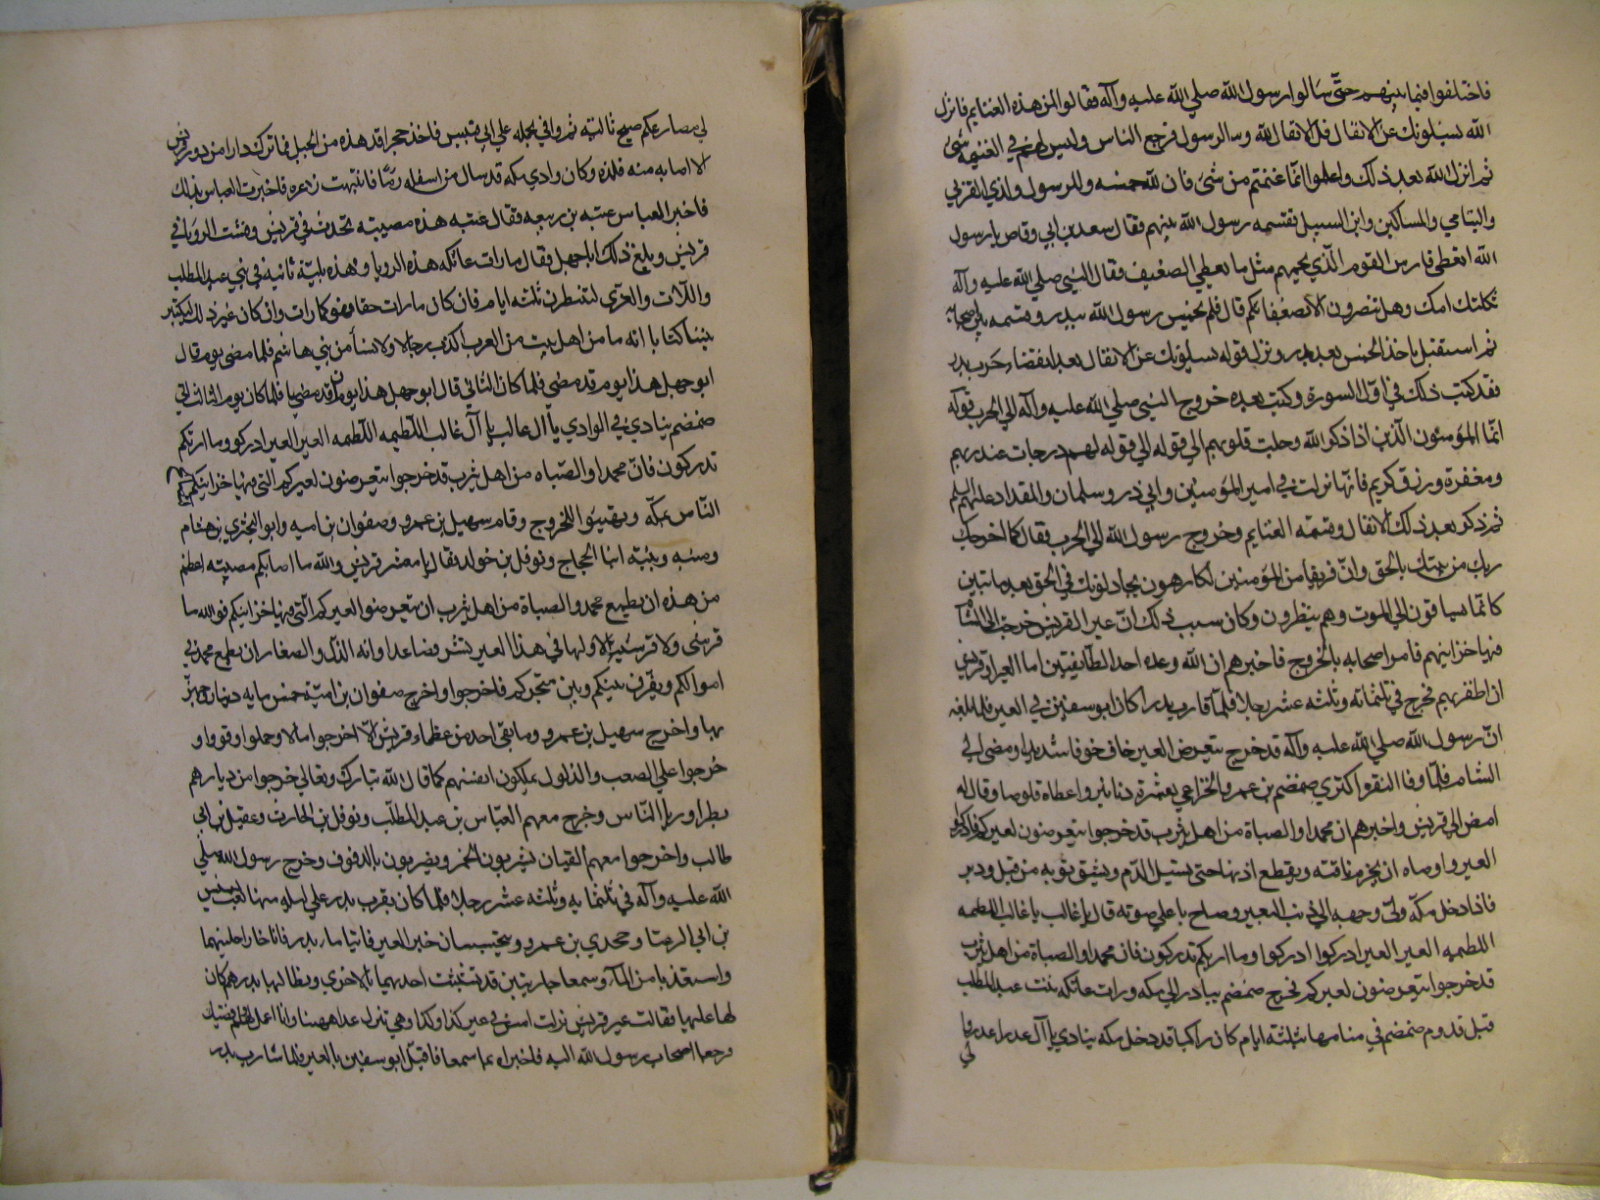 فاختلفوا فيما بينهم حتى سالوا رسول الله صلي الله عليه وآله فقالوا لمن هذه الغنايم فانزل
الله يسئلونك عن الانفال قل الانفال لله وللرسول فرجع الناس وليس لهم في الغنيمة شئ
ثم انزل الله بعد ذلك واعلموا انما غنمتم من شئ فان لله خمسه وللرسول ولذي القربي
واليتامي والمساكين وابن السبيل فقسمه رسول الله بينهم فقال سعد بن ابي وقاص يا رسول
الله اتعطي فارس القوم الذي يحميهم مثل ما تعطي الضعيف فقال النبي صلي الله عليه وآله
ثكلتك امك وهل تنصرون الا بضعفائكم قال فلم يخمس رسول الله ببدر وقسمه بين اصحابه
ثم استقبل ياخذ الخمس بعد بدر ونزل قوله يسئلونك عن الانفال بعد انقضاء حرب بدر
فقد كتب ذلك في اول السورة وكتب بعده خروج النبي صلي الله عليه وآله الي الحرب قوله
انما المؤمنون الذين اذا ذكر الله وجلت قلوبهم الي قوله الي قوله لهم درجات عند ربهم
ومغفرة ورزق كريم فانها نزلت في امير المؤمنين وابي ذر وسلمان والمقداد عليهم السلم
ثم ذكر بعد ذلك الانفال وقسمة الغنايم وخروج رسول الله الي الحرب فقال كما اخرجك
ربك من بيتك بالحق وان فريقا من المؤمنين لكارهون يجادلونك في الحق بعد ما تبين
كانما يساقون الي الموت وهم ينظرون وكان سبب ذلك ان عير القريش خرجت الي الشام
فيها خزاينهم فامر اصحابه بالخروج فاخبرهم ان الله وعده احد الطائفيتين اما العير او قريش
ان اظفر بهم فخرج في ثلثمائة وثلثه عشر رجلا فلما قارب بدرا كان ابو سفين في العير فلما بلغه
ان رسول الله صلي الله عليه وآله قد خرج يتعرض العير خاف خوفا شديدا ومضي الي
الشام فلما وفا النقرة اكتري ضمضم بن عمرو الخزاعي بعشرة دنانير واعطاه قلوصا وقال له
امض الي قريش واخبرهم ان محمدا والصباة من اهل يثرب قد خرجوا يتعرضون لعيركم فادركوا
العير واوصاه ان يخرم ناقته ويقطع اذنها حتى يسيل الدم ويشق ثوبه من قبل ودبر
فاذا دخل مكة ولي وجهه الي ذنب البعير وصاح باعلي صوته قال يا غالب يا غالب اللطيمه
اللطيمه العير العير ادركوا ادركوا وما اريكم تدركون فان محمدا والصباة من اهل يثرب
قد خرجوا يتعرضون لعيركم فخرج ضمضم يبادر الي مكه ورات عاتكه بنت عبد المطلب
قبل قدوم ضمضم في منامها بثلثة ايام كان راكبا قد دخل مكه ينادي يا آل عدر اعدروا
لي
لي مصارعكم صبح ثالثة ثم وافي بجمله علي ابي قبيس فاخذ حجرا فدهده من الجبل فما ترك دارا من دور قريش
الا اصابه منه فلذه وكان وادي مكه قد سال من اسفله دما فانتبهت ذعره فاخبرت العباس بذلك
فاخبر العباس عتبه بن ربيعه فقال عتبه هذه مصيبته تحدث في قريش وفشت الرويا في
قريش وبلغ ذلك ابا جهل فقال ما رات عاتكه هذه الرويا وهذه نبية ثانيه في بني عبد المطلب
واللات والعزي لننتظرن ثلثه ايام فان كان ما رات حقا فهو كما رات وان كان غير ذلك لنكتبن
بيننا كتابا انه ما من اهل بيت من العرب اكذب رجالا ولا نساأ من بني هاشم فلما مضي يوم قال
ابو جهل هذا يوم قد مضي فلما كان الثاني قال ابو جهل هذا يومان قد مضيا فلما كان يوم الثالث اتي
ضمضم ينادي في الوادي يا آل غالب يا آل غالب اللطيمه اللطيمه العير العير ادركوا وما اريكم
تدركون فان محمدا والصباه من اهل يثرب قد خرجوا يتعرضون لعيركم التي فيها خزاينكم
الناس بمكه وتهيئوا للخروج وقام سهيل بن عمرو وصفوان بن اميه وابو البختري بن هشام
ومنبه ونبيه ابنا الحجاج ونوفل بن خولد فقال يا معشر قريش والله ما اصابكم مصيبته اعظم
من هذه ان يطمع محمد والصباة من اهل يثرب ان يتعرضوا لعيركم التي فيها خزاينكم فو الله ما
قرشي ولا قرشيه الا ولها في هذا العير نش فصاعدا وانه الذل والصغار ان يطمع محمد في
اموالكم ويفرق بينكم وبين متجركم فاخرجوا واخرج صفوان بن امية خمس مايه دينار وجهز
بها واخرج سهيل بن عمرو وما بقي احد من عظماء قريش الا اخرجوا مالا وحملوا وقووا و
خرجوا علي الصعب والذلول يملكون انفسهم كما قال الله تبارك وتعالي خرجوا من ديارهم
بطرا ورياأ الناس وخرج معهم العباس بن عبد المطلب ونوفل بن الحارث وعقيل بن ابي
طالب واخرجوا معهم القيان يشربون الخمر ويضربون بالدفوف وخرج رسول الله صلي
الله عليه وآله في ثلثمايه وثلثه عشر رجلا فلما كان بقرب بدر علي ليله منها بعث بسبس
بن ابي الرعبا ومجدي بن عمرو يتجسسان خبر العير فاتيا ماء بدر فاناخا راحلتيهما
واستعذبا من الماء وسمعا جاريتين قد تشبثت احديهما بالاخري وتطالبها بدرهم كان
لها عليها فقالت عير قريش نزلت امس في عير كذا وكذا وهي تنزل غدا ههنا وانا اعمل لهم واقضيك
فرجعا اصحاب رسول الله اليه فاخبراه بما سمعا فاقبل ابو سفين بالعير فلما شارب بدر